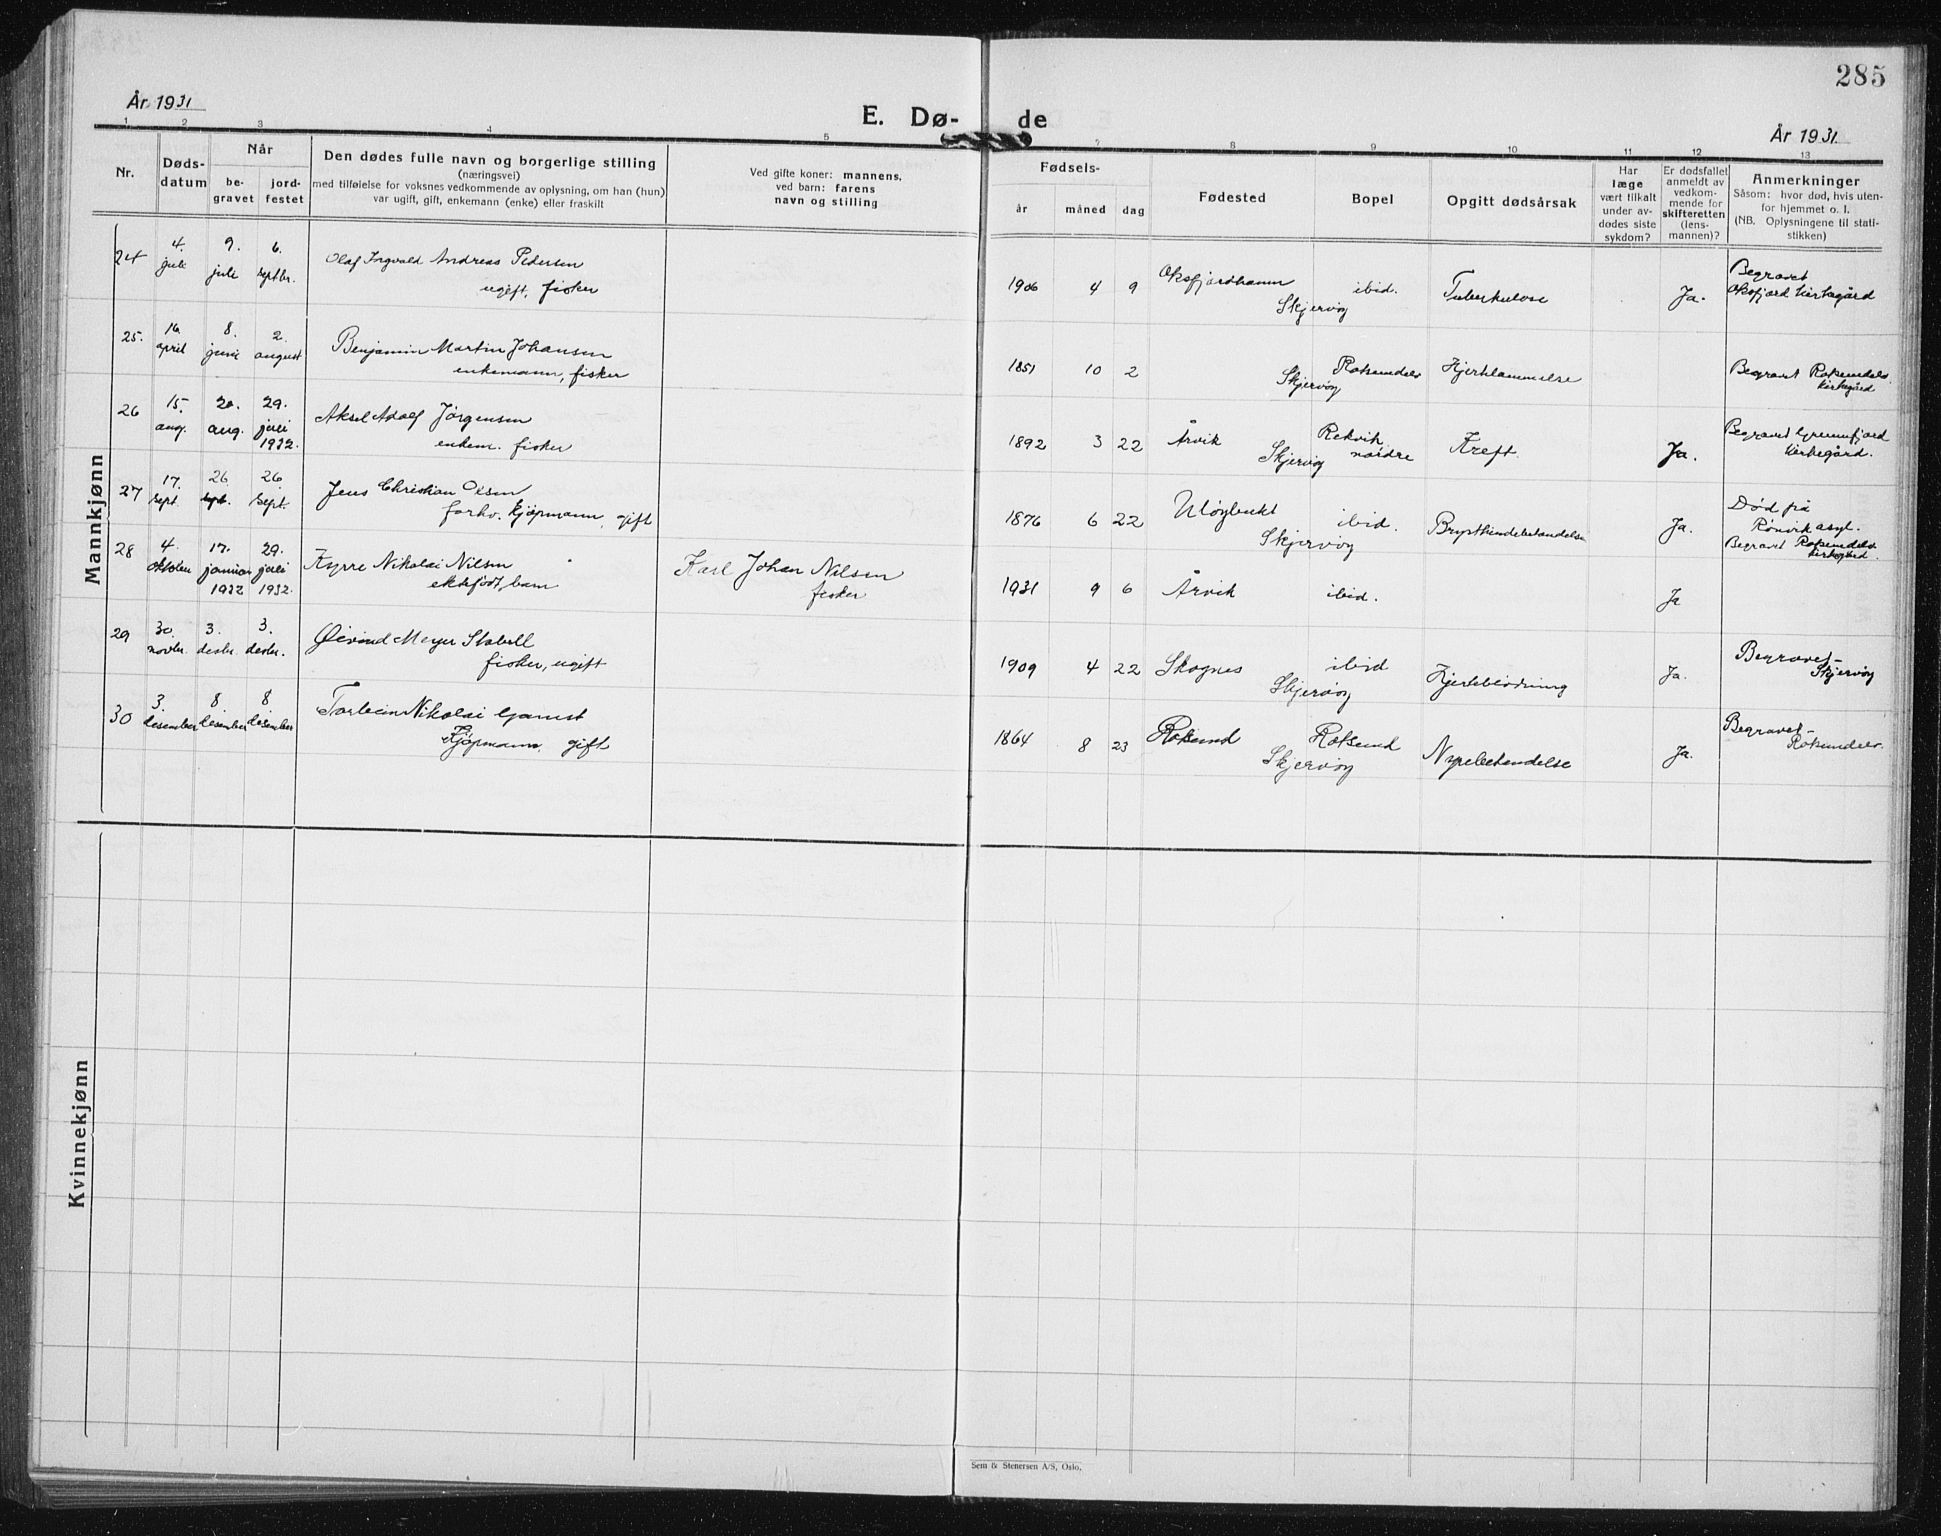 285
År 1931
E. Dø- de
År 1931.
1 2 3 4 5 7 8 9 10 11 12 13
Nr.
Døds-
datum
Når
be-
gravet
jord-
festet
Den dødes fulle navn og borgerlige stilling
(næringsvei)
med tilføielse for voksnes vedkommende av oplysning, om han (hun)
var ugift, gift, enkemann (enke) eller fraskilt
Ved gifte koner: mannens,
ved barn: farens
navn og stilling
Fødsels-
år måned dag
Fødested
Bopel
Opgitt dødsårsak
Har
læge
vært tilkalt
under av-
dødes siste
sykdom?
Er dødsfallet
anmeldt av
vedkom-
mende for
skifteretten
(lens-
mannen)?
Anmerkninger
Såsom: hvor død, hvis uten-
for hjemmet o. l.
(NB. Oplysningene til stati-
stikken)
Mannkjønn
24 4. juli 9. juli 6. septbr. Olaf Ingvald Andreas Pedersen
ugift, fisker
1906 4 9 Oksfjordhamn
Skjervøy ibid. Tuberkulose Ja. Begravet
Oksfjord kirkegård
25. 16. april 8. juni 2. august Benjamin Martin Johansen
enkemann, fisker
1851 10 2 Skjervøy Hjertelammelse Begravet
kirkegård
26 15. aug. 20. aug. 29. juli 1932. Aksel Adolf Jørgensen
enkem. fisker
1892 3 22 Årvik
Skjervøy Rekvik
nordre Kreft. Ja. Begravet
kirkegård.
27 17. sept. 26 sept. 26. sept. Jens Christian Olsen
forhv. kjøpmann, gift
1876 6 22 Uløybukt
Skjervøy ibid. Brysthindebetendelse Ja. Død på
Rønvik asyl.
Begravet
kirkegård.
28 4. oktober 17. januar 1932 29. juli 1932. Kyrre Nikolai Nilsen
ektefødt, barn
Karl Johan Nilsen
fisker
1931 9 6 Årvik ibid. Ja
29 30. novbr. 3. desbr. 3. desbr. Øivind Meyer Stabell
fisker, ugift
1909 4 22 Skognes
Skjervøy ibid Ja. Begravet
Skjervøy
30 3. desember 8. desember 8. desember Torbein Nikolai Gamst
Kjøpmann, gift
1864 8 23 Rotsund
Skjervøy Rotsund Nyrebetendelse Ja. Begravet
Kvinnekjønn
Sem & Stenersen A/S, Oslo.